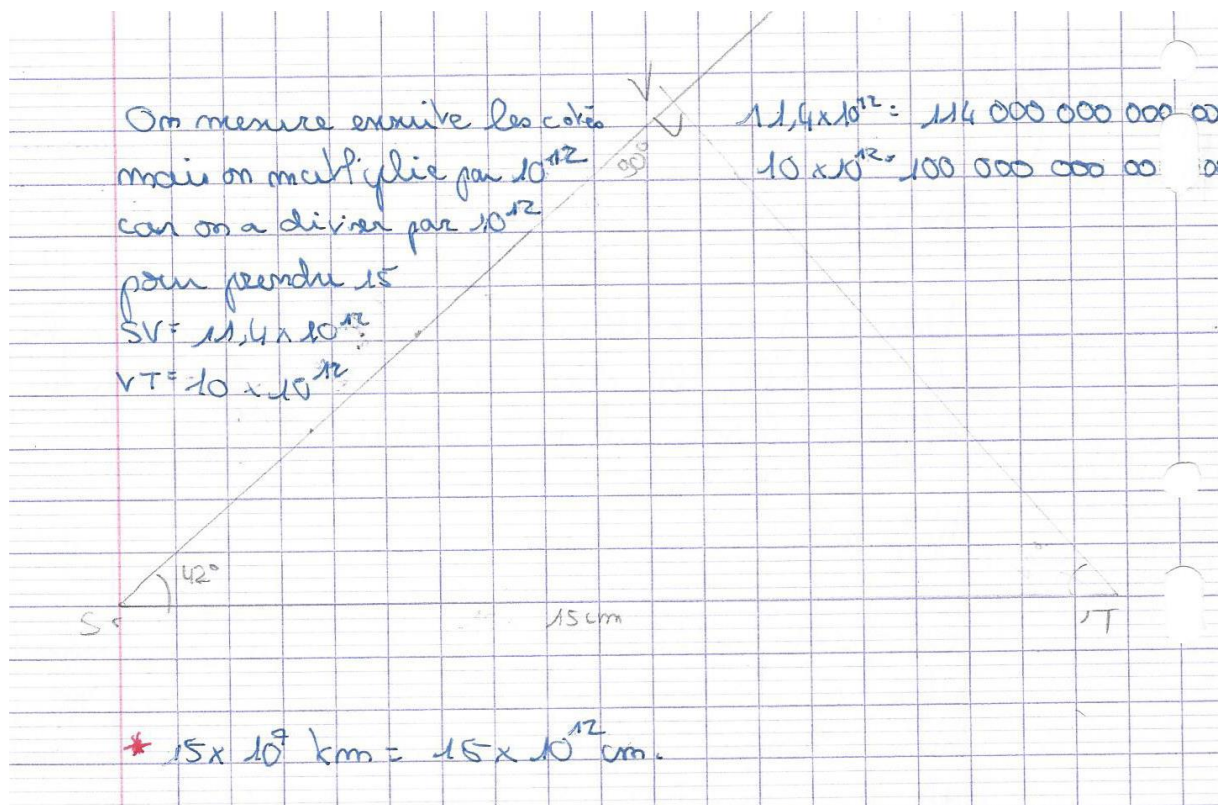 On mesure ensuite les cotés
mais on multiplie par 10^12
car on a diviser par 10^12
pour prendre 15
SV = 11,4 x 10^12
VT = 10 x 10^12
V
90°
11,4x10^12 = 114 000 000 000 00
10 x10^12 = 100 000 000 00 0
42°
S
15cm
T
* 15x 10^7 km = 15 x 10^12 cm.